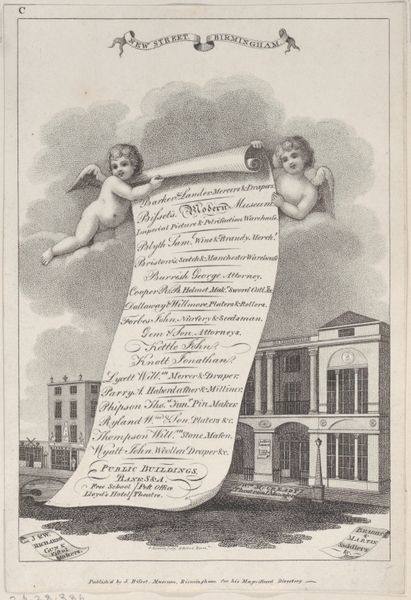 C
NEW STREET. BIRMINGHAM.
Barker & Lander, Mercers & Drapers.
Bisset's, Modern Museum
Imperial Picture & Petrifaction Warehouse.
Blyth Sam.l Wine & Brandy, Merch.t
Bristow's Scotch & Manchester Warehouse
Burrish George, Attorney.
Cooper R. B. Helmet Mak.r Sword Cutl.r &c.
Dallaway & Willmore, Platers & Rollers.
Forbes John, Nursery & Seedsman.
Gem & Son, Attorneys.
Kettle John.
Knott Jonathan.
Lycett Will.m Mercer & Draper.
Parry A. Haberdasher & Milliner.
Phipson Tho.s Jun.r Pin Maker.
Ryland W.m & Son, Platers &c.
Thompson Will.m Stone Mason.
Wyatt John, Woollen Draper &c.
PUBLIC BUILDINGS,
BANK S&A.
Free School Post Office
Lloyd's Hotel Theatre.
McCREADY
Theatrical Manager
J & W.
RICHARDS
GUN &
Pistol
Makers.
MARTIN
Saddlers
&c.
Publish'd by J. Bisset, Museum, Birmingham for his Magnificent Directory